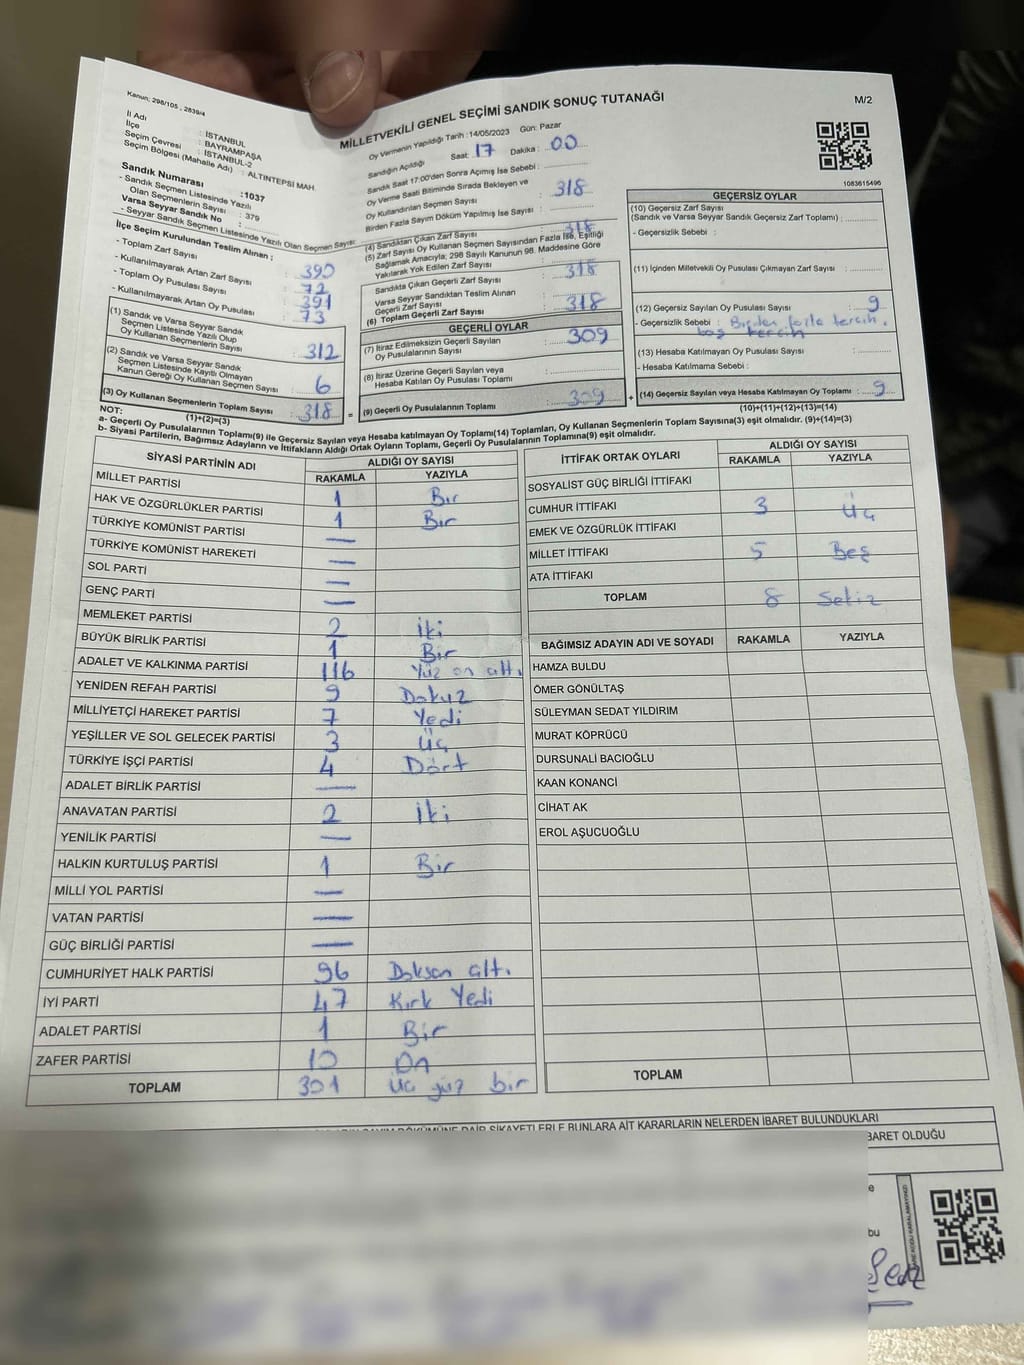 Kanun: 298/105 , 2839/4
MİLLETVEKİLİ GENEL SEÇİMİ SANDIK SONUÇ TUTANAĞI
M/2
İl Adı : İSTANBUL
İlçe : BAYRAMPAŞA
Seçim Çevresi : İSTANBUL-2
Seçim Bölgesi (Mahalle Adı) : ALTINTEPSİ MAH.
Sandık Numarası :1037
- Sandık Seçmen Listesinde Yazılı
Olan Seçmenlerin Sayısı : 379
Varsa Seyyar Sandık No :
- Seyyar Sandık Seçmen Listesinde Yazılı Olan Seçmen Sayısı:
İlçe Seçim Kurulundan Teslim Alınan ;
- Toplam Zarf Sayısı : 390
- Kullanılmayarak Artan Zarf Sayısı : 72
- Toplam Oy Pusulası Sayısı : 391
- Kullanılmayarak Artan Oy Pusulası : 73
(1) Sandık ve Varsa Seyyar Sandık
Seçmen Listesinde Yazılı Olup
Oy Kullanan Seçmenlerin Sayısı : 312
(2) Sandık ve Varsa Seyyar Sandık
Seçmen Listesinde Kayıtlı Olmayan
Kanun Gereği Oy Kullanan Seçmen Sayısı : 6
(3) Oy Kullanan Seçmenlerin Toplam Sayısı : 318
(1)+(2)=(3)
Oy Vermenin Yapıldığı Tarih :14/05/2023 Gün: Pazar
Sandığın Açıldığı Saat: 17 Dakika : 00
Sandık Saat 17:00'den Sonra Açımış İse Sebebi :
Oy Verme Saati Bitiminde Sırada Bekleyen ve
Oy Kullandırılan Seçmen Sayısı : 318
Birden Fazla Sayım Döküm Yapılmış İse Sayısı :
(4) Sandıktan Çıkan Zarf Sayısı : 318
(5) Zarf Sayısı Oy Kullanan Seçmen Sayısından Fazla İse, Eşitliği
Sağlamak Amacıyla; 298 Sayılı Kanunun 98. Maddesine Göre
Yakılarak Yok Edilen Zarf Sayısı :
Sandıkta Çıkan Geçerli Zarf Sayısı : 318
Varsa Seyyar Sandıktan Teslim Alınan
Geçerli Zarf Sayısı :
(6) Toplam Geçerli Zarf Sayısı : 318
GEÇERLİ OYLAR
(7) İtiraz Edilmeksizin Geçerli Sayılan
Oy Pusulalarının Sayısı : 309
(8) İtiraz Üzerine Geçerli Sayılan veya
Hesaba Katılan Oy Pusulası Toplamı :
= (9) Geçerli Oy Pusulalarının Toplamı : 309
1083615496
GEÇERSİZ OYLAR
(10) Geçersiz Zarf Sayısı
(Sandık ve Varsa Seyyar Sandık Geçersiz Zarf Toplamı) :
- Geçersizlik Sebebi :
(11) İçinden Milletvekili Oy Pusulası Çıkmayan Zarf Sayısı :
(12) Geçersiz Sayılan Oy Pusulası Sayısı : 9
- Geçersizlik Sebebi : Birden fazla tercih.
boş tercih
(13) Hesaba Katılmayan Oy Pusulası Sayısı :
- Hesaba Katılmama Sebebi :
+ (14) Geçersiz Sayılan veya Hesaba Katılmayan Oy Toplamı : 9
(10)+(11)+(12)+(13)=(14)
NOT:
a- Geçerli Oy Pusulalarının Toplamı(9) ile Geçersiz Sayılan veya Hesaba katılmayan Oy Toplamı(14) Toplamları, Oy Kullanan Seçmenlerin Toplam Sayısına(3) eşit olmalıdır. (9)+(14)=(3)
b- Siyasi Partilerin, Bağımsız Adayların ve İttifakların Aldığı Ortak Oyların Toplamı, Geçerli Oy Pusulalarının Toplamına(9) eşit olmalıdır.
SİYASİ PARTİNİN ADI ALDIĞI OY SAYISI
RAKAMLA YAZIYLA
MİLLET PARTİSİ 1 Bir
HAK VE ÖZGÜRLÜKLER PARTİSİ 1 Bir
TÜRKİYE KOMÜNİST PARTİSİ —
TÜRKİYE KOMÜNİST HAREKETİ —
SOL PARTİ —
GENÇ PARTİ —
MEMLEKET PARTİSİ 2 İki
BÜYÜK BİRLİK PARTİSİ 1 Bir
ADALET VE KALKINMA PARTİSİ 116 Yüz on altı
YENİDEN REFAH PARTİSİ 9 Dokuz
MİLLİYETÇİ HAREKET PARTİSİ 7 Yedi
YEŞİLLER VE SOL GELECEK PARTİSİ 3 Üç
TÜRKİYE İŞÇİ PARTİSİ 4 Dört
ADALET BİRLİK PARTİSİ —
ANAVATAN PARTİSİ 2 İki
YENİLİK PARTİSİ —
HALKIN KURTULUŞ PARTİSİ 1 Bir
MİLLİ YOL PARTİSİ —
VATAN PARTİSİ —
GÜÇ BİRLİĞİ PARTİSİ —
CUMHURİYET HALK PARTİSİ 96 Doksan altı
İYİ PARTİ 47 Kırk Yedi
ADALET PARTİSİ 1 Bir
ZAFER PARTİSİ 10 On
TOPLAM 301 Üç yüz bir
İTTİFAK ORTAK OYLARI ALDIĞI OY SAYISI
RAKAMLA YAZIYLA
SOSYALİST GÜÇ BİRLİĞİ İTTİFAKI
CUMHUR İTTİFAKI 3 Üç
EMEK VE ÖZGÜRLÜK İTTİFAKI
MİLLET İTTİFAKI 5 Beş
ATA İTTİFAKI
TOPLAM 8 Sekiz
BAĞIMSIZ ADAYIN ADI VE SOYADI RAKAMLA YAZIYLA
HAMZA BULDU
ÖMER GÖNÜLTAŞ
SÜLEYMAN SEDAT YILDIRIM
MURAT KÖPRÜCÜ
DURSUNALİ BACIOĞLU
KAAN KONANCİ
CİHAT AK
EROL AŞUCUOĞLU
TOPLAM
DÖKÜMÜNE DAİR ŞİKAYETLERLE BUNLARA AİT KARARLARIN NELERDEN İBARET BULUNDUKLARI
BARET OLDUĞU